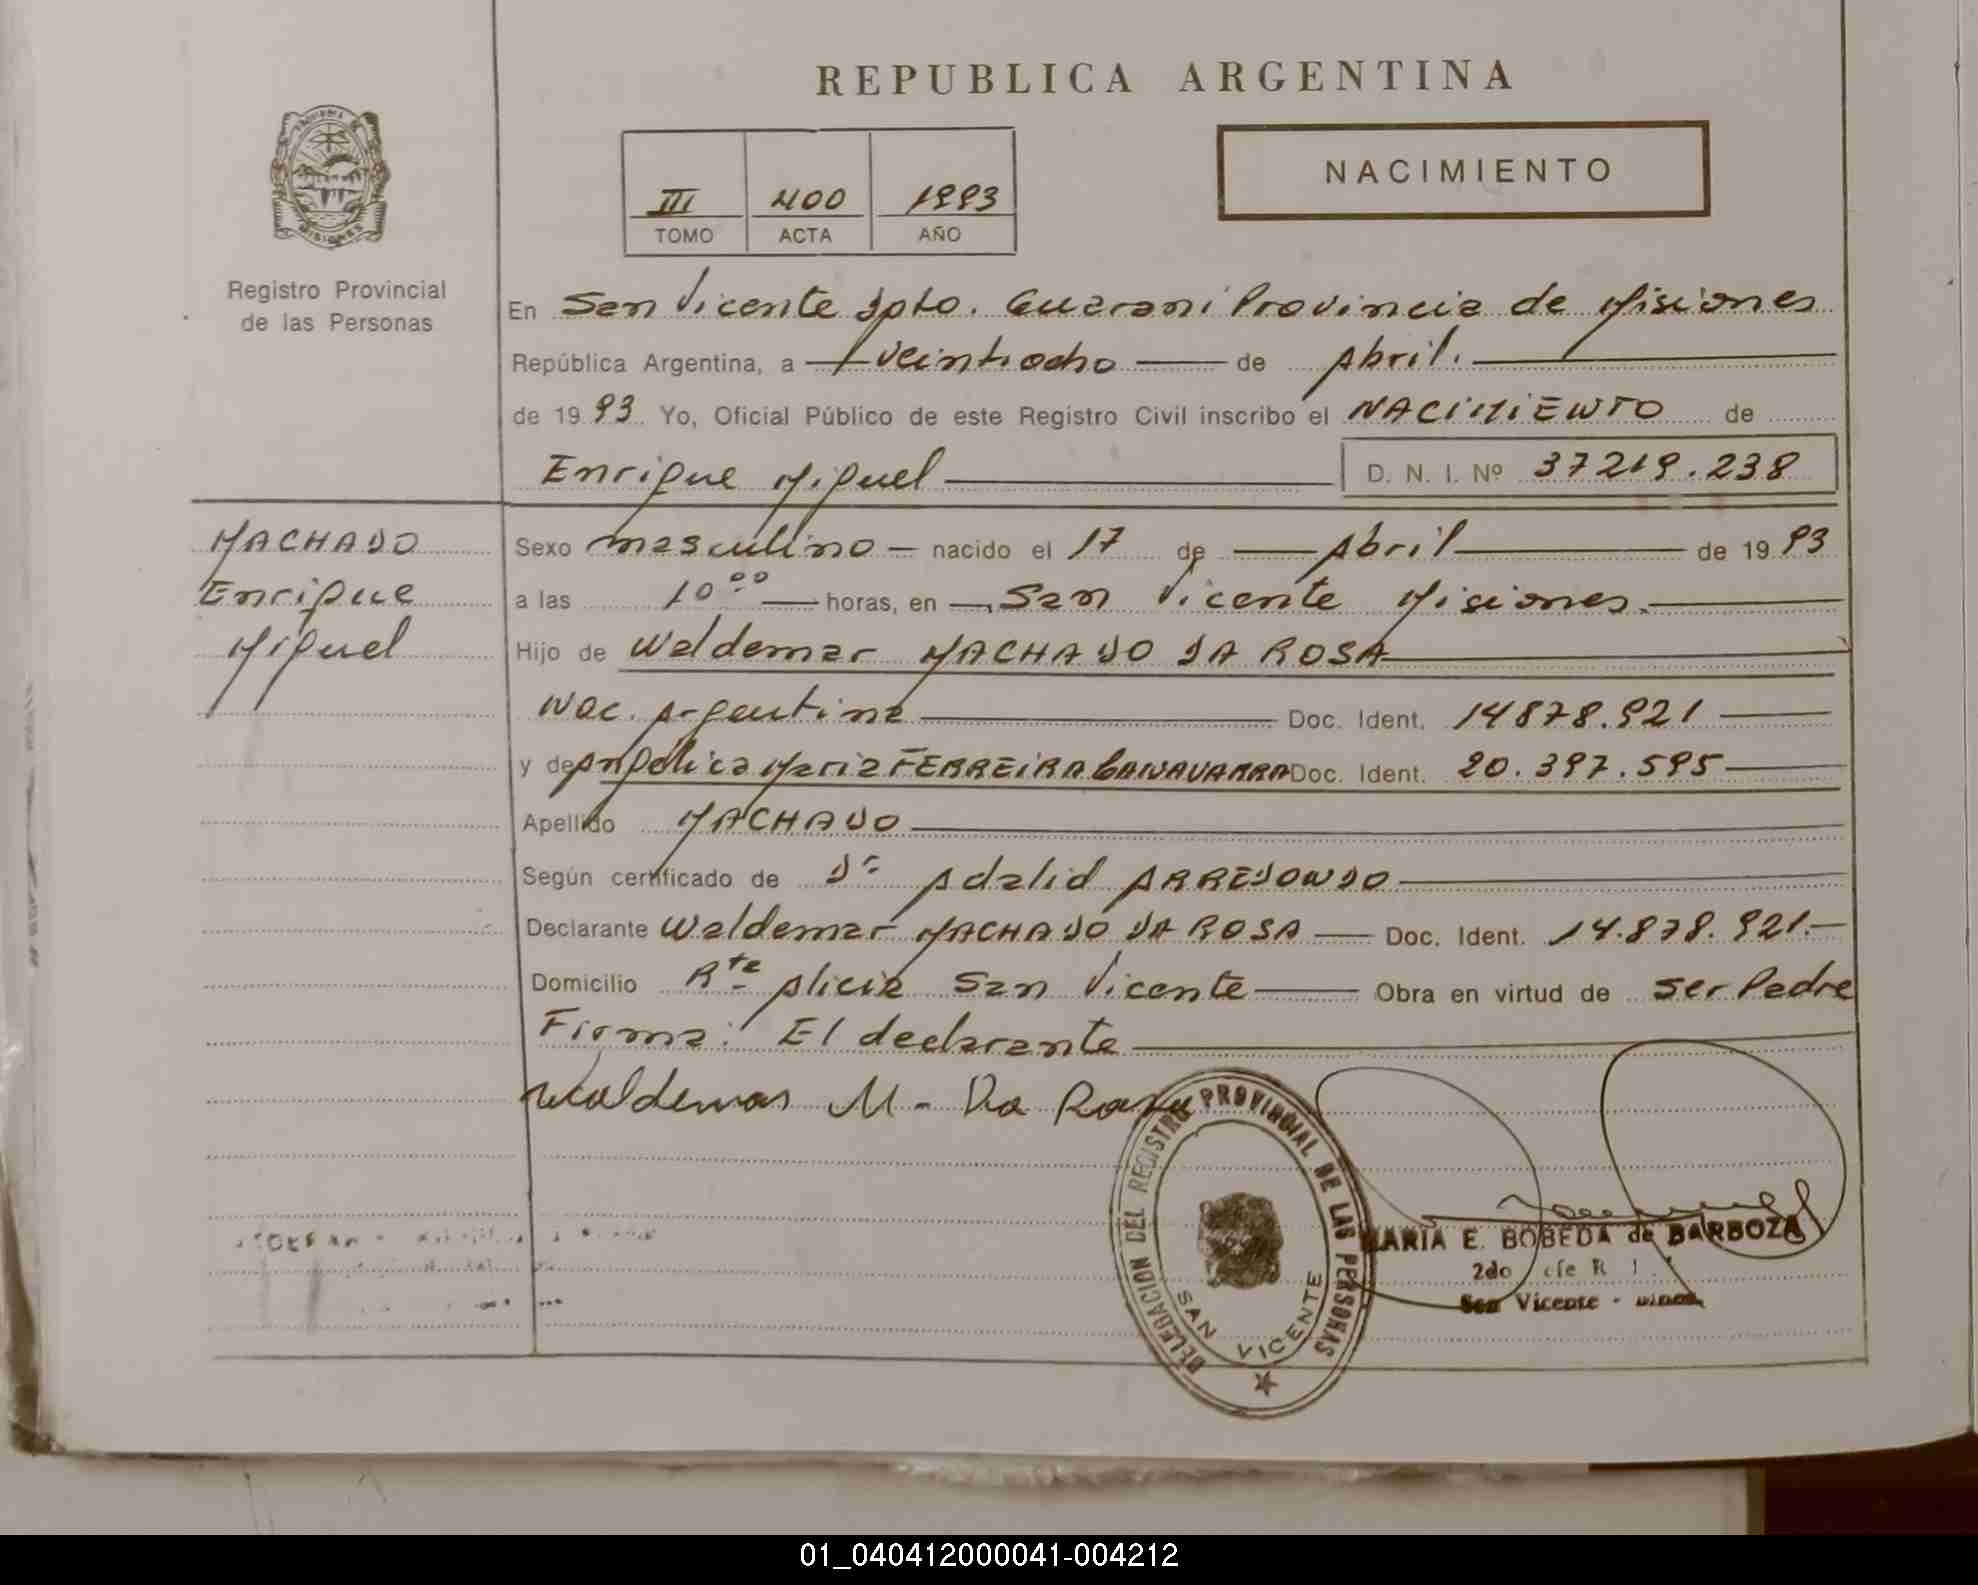 REPUBLICA ARGENTINA
NACIMIENTO
III 400 1993
TOMO ACTA AÑO
Registro Provincial
de las Personas
En San Vicente Dpto. Guarani Provincia de Misiones
República Argentina, a veintiocho de Abril.
de 1993 Yo, Oficial Público de este Registro Civil inscribo el NACIMIENTO de
Enrique Miguel D. N. I. Nº 37219.238
MACHADO
Enrique
Miguel
Sexo masculino nacido el 17 de Abril de 1993
a las 10⁰⁰ horas, en San Vicente Misiones.
Hijo de Waldemar MACHADO DA ROSA
Nac. Argentina Doc. Ident. 14878.921
y de Angelica Maria FERREIRA Doc. Ident. 20.397.595
Apellido MACHADO
Según certificado de Dr Adalid ARREDONDO
Declarante Waldemar MACHADO DA ROSA Doc. Ident. 14.878.921.
Domicilio Rte Alicia San Vicente Obra en virtud de ser Padre
Firma: El declarante
Waldemar M - Da Rosa
DELEGACION DEL REGISTRO PROVINCIAL DE LAS PERSONAS
SAN VICENTE
MARIA E. BOBEDA de BARBOZA
2do
San Vicente -
01_040412000041-004212